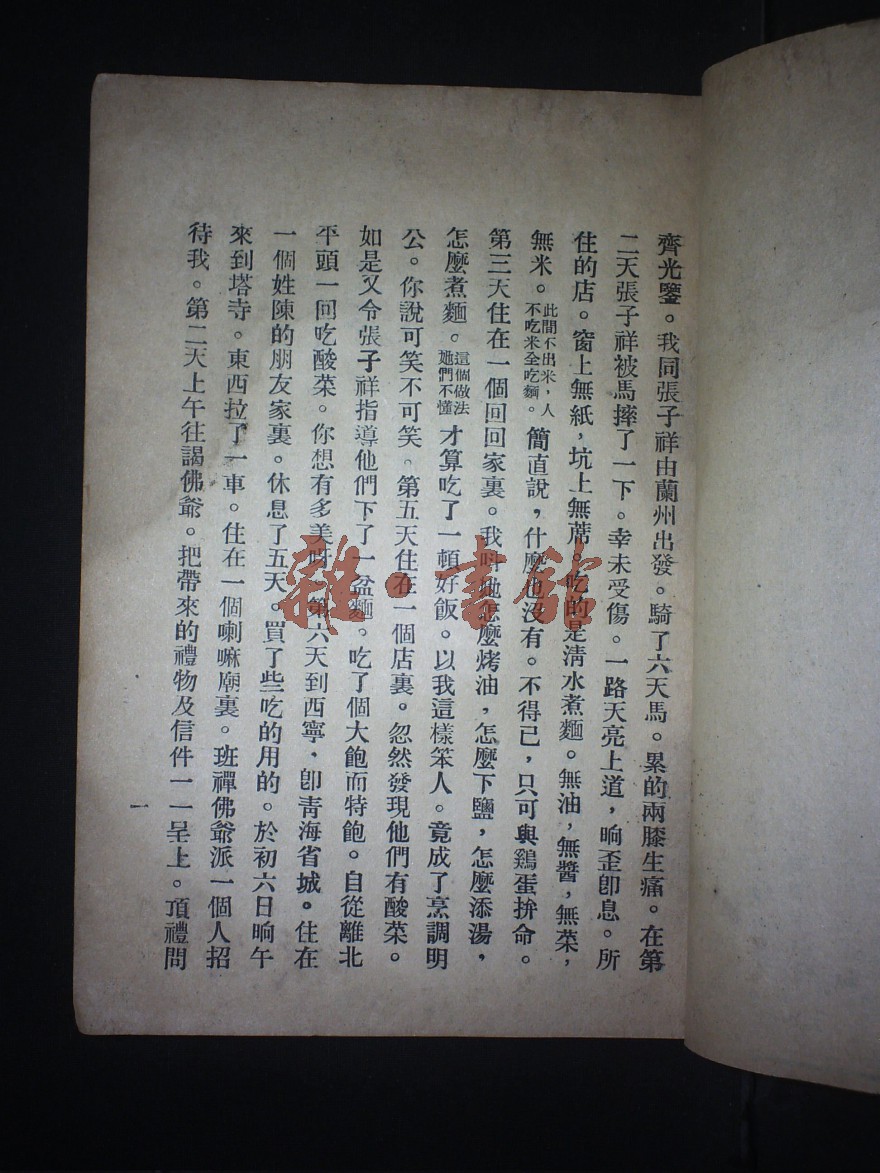 齊光鑒。我同張子祥由蘭州出發。騎了六天馬。累的兩膝生痛。在第
二天張子祥被馬摔了一下。幸未受傷。一路天亮上道，晌歪卽息。所
住的店。窗上無紙，坑上無蓆。吃的是淸水煮麵。無油，無醬，無菜，
無米。此間不出米，人不吃米全吃麵。簡直說，什麼也沒有。不得已，只可與鷄蛋拚命。
第三天住在一個回回家裏。我叫她怎麼烤油，怎麼下鹽，怎麼添湯，
怎麼煮麵。這個做法她們不懂才算吃了一頓好飯。以我這樣笨人。竟成了烹調明
公。你說可笑不可笑。第五天住在一個店裏。忽然發現他們有酸菜。
如是又令張子祥指導他們下了一盆麵。吃了個大飽而特飽。自從離北
平頭一回吃酸菜。你想有多美呀。第六天到西寧，卽靑海省城。住在
一個姓陳的朋友家裏。休息了五天。買了些吃的用的。於初六日晌午
來到塔寺。東西拉了一車。住在一個喇嘛廟裏。班禪佛爺派一個人招
待我。第二天上午往謁佛爺。把帶來的禮物及信件一一呈上。頂禮問
一
雜·書館